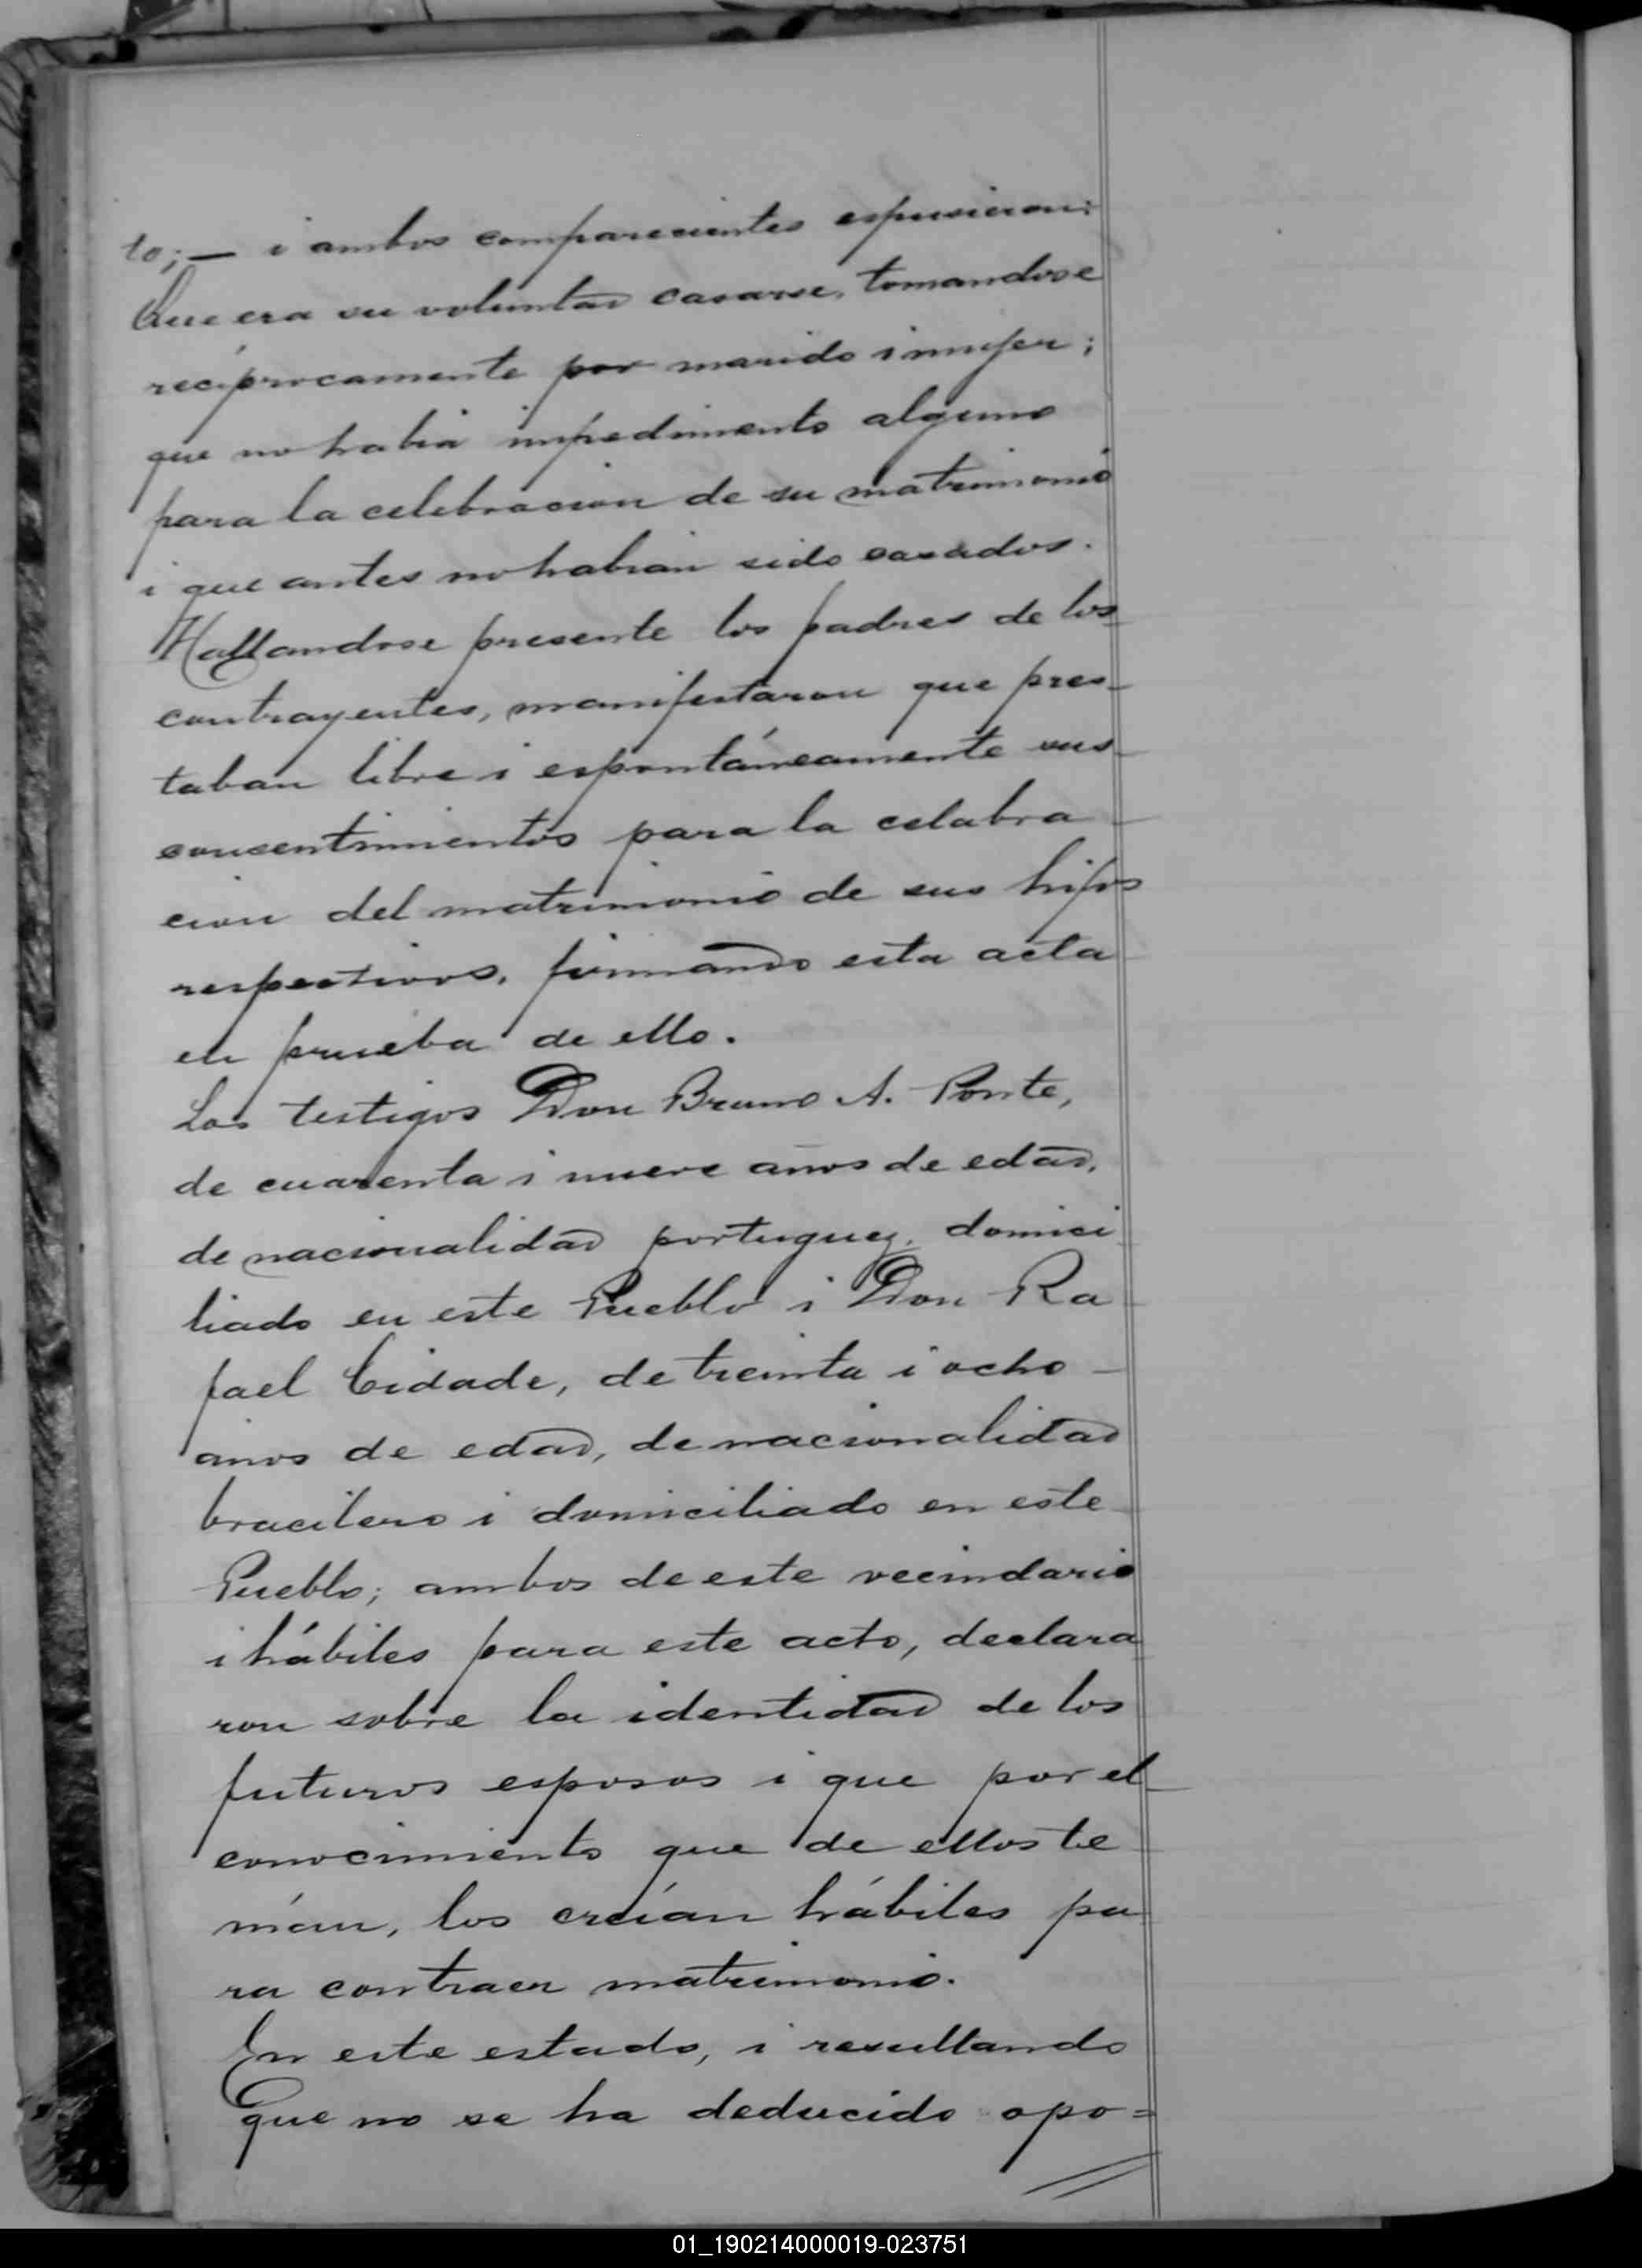 to; — i ambos comparecientes espusieron:
Que era su voluntad casarse, tomandose
recíprocamente por marido i mujer;
que no habia impedimento alguno
para la celebracion de su matrimonio
i que antes no habian sido casados.
Hallandose presente los padres de los
contrayentes, manifestaron que pres-
taban libre i espontáneamente sus
consentimientos para la celabra
cion del matrimonio de sus hijos
respectivos, firmando esta acta
en prueba de ello.
Los testigos Don Bruno A. Ponte,
de cuarenta i nueve años de edad,
de nacionalidad portuguez, domici
liado en este Pueblo i Don Ra
fael Cidade, de treinta i ocho —
años de edad, de nacionalidad
bracilero i domiciliado en este
Pueblo; ambos de este vecindario
i hábiles para este acto, declara
ron sobre la identidad de los
futuros esposos i que por el
conocimiento que de ellos te
nían, los creían hábiles pa
ra contraer matrimonio.
En este estado, i resultando
que no se ha deducido opo=
01_190214000019-023751